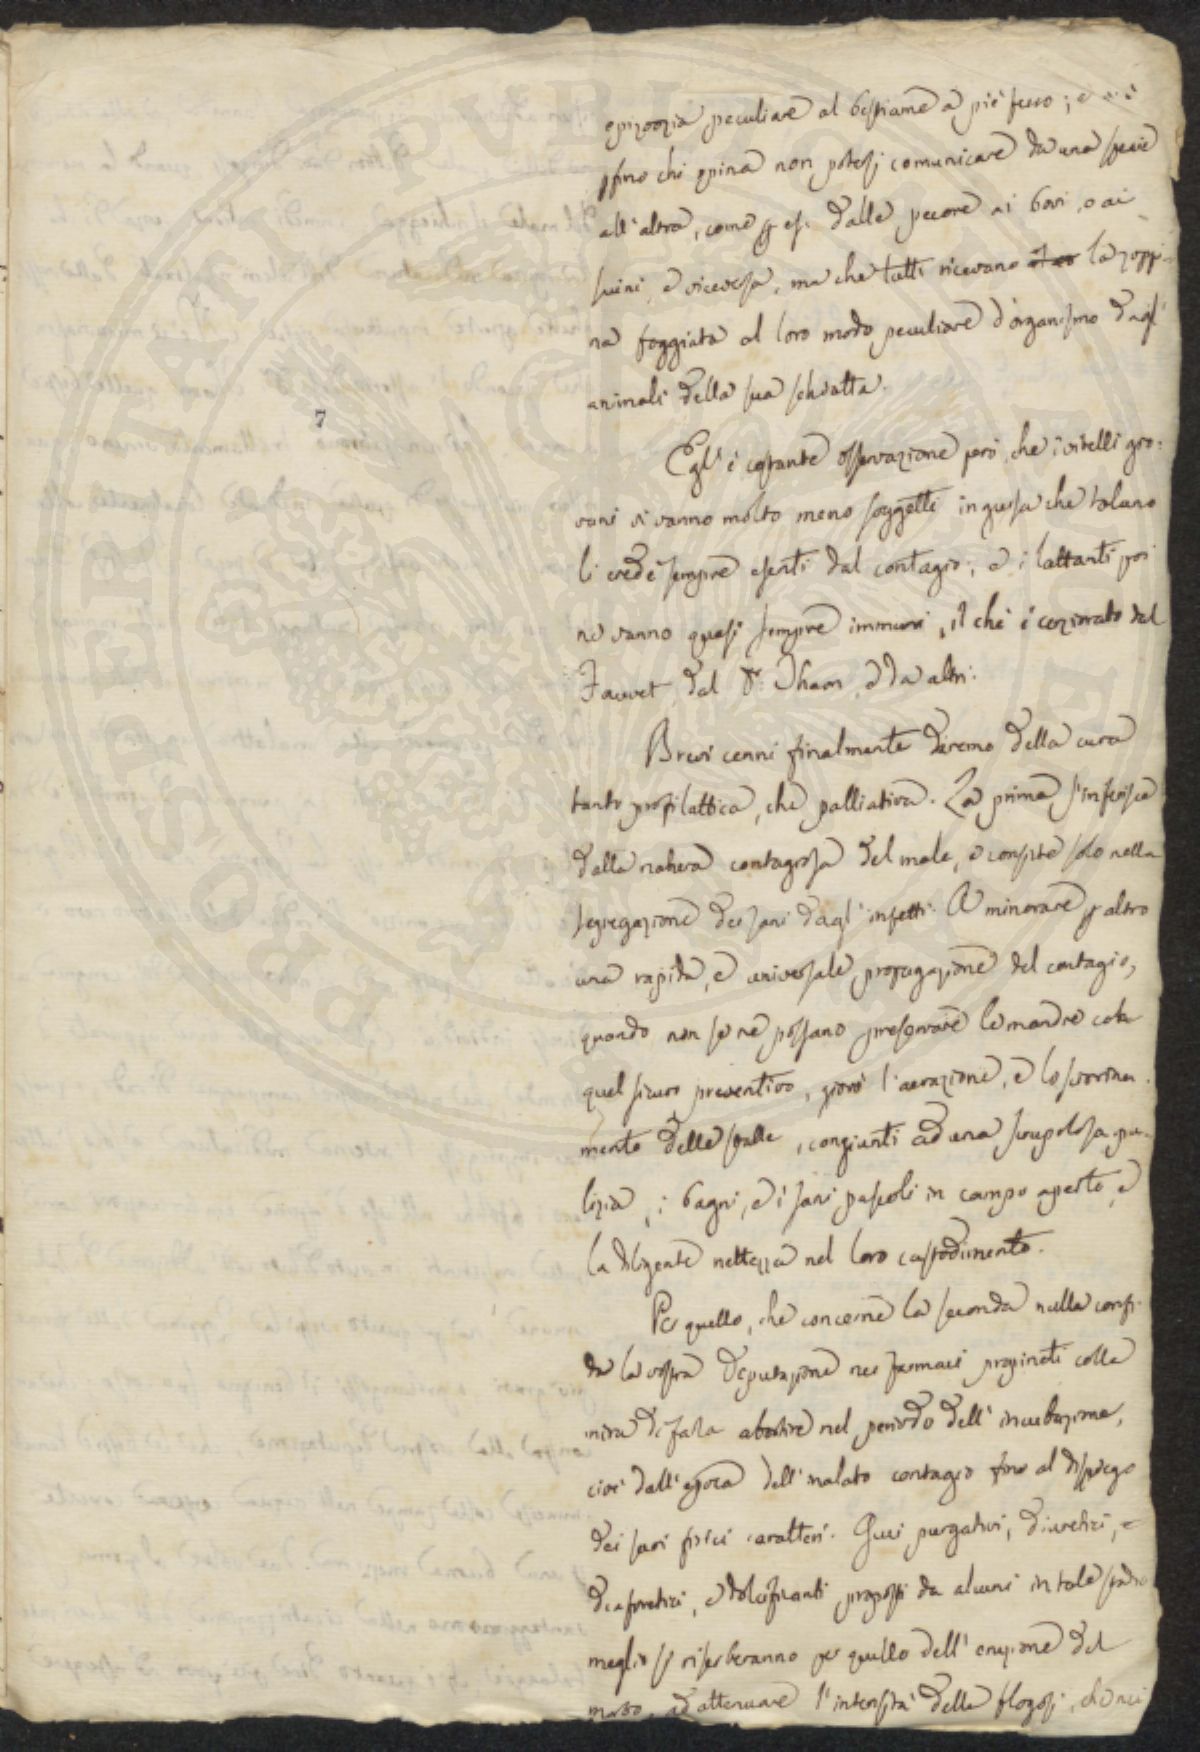 epizoozia peculiare al bestiame a piè fesso; e v'è
sino chi opina non potersi comunicare da una specie
all'altra, come p. es. dalle pecore ai bovi, o ai
suini, e viceversa, ma che tutti ricevano la zoppi-
na foggiata al loro modo peculiare d'organismo dagl'
animali della sua schiatta.
7
Egl'è costante osservazione però, che i vitelli gio-
vani vi vanno molto meno soggetti in guisa che taluno
li crede sempre esenti dal contagio; e i lattanti poi
ne vanno quasi sempre immuni, il che è cerziorato dal
Favvet, dal Dr. , e da altri.
Brevi cenni finalmente daremo della cura
tanto profilattica, che palliativa. La prima s'inferisce
dalla natura contagiosa del male, e consiste solo nella
segregazione dei sani dagl'infetti. A minorare p altro
una rapida, e universale propagazione del contagio,
quando non se ne possano preservare le mandre con
quel sicuro preventivo, giova l'aerazione, e lo sciorina-
mento delle stalle, congiunti ad una scrupolosa pu-
lizia, i bagni, e i sani pascoli in campo aperto, e
la diligente nettezza nel loro custodimento.
Per quello, che concerne la seconda nulla confi-
da la vostra Deputazione nei farmaci propinati colla
mira di farla abortire nel periodo dell'incubazione,
cioè dall'epoca dell'inalato contagio fino al dispiego
dei suoi fisici caratteri. Quei purgativi, diuretici, e
diaforetici, e dolcificanti proposti da alcuni in tale stadio
meglio si riserberanno per quello dell'eruzione del
morbo, ad attenuare l'intensità della flogosi, ed nei